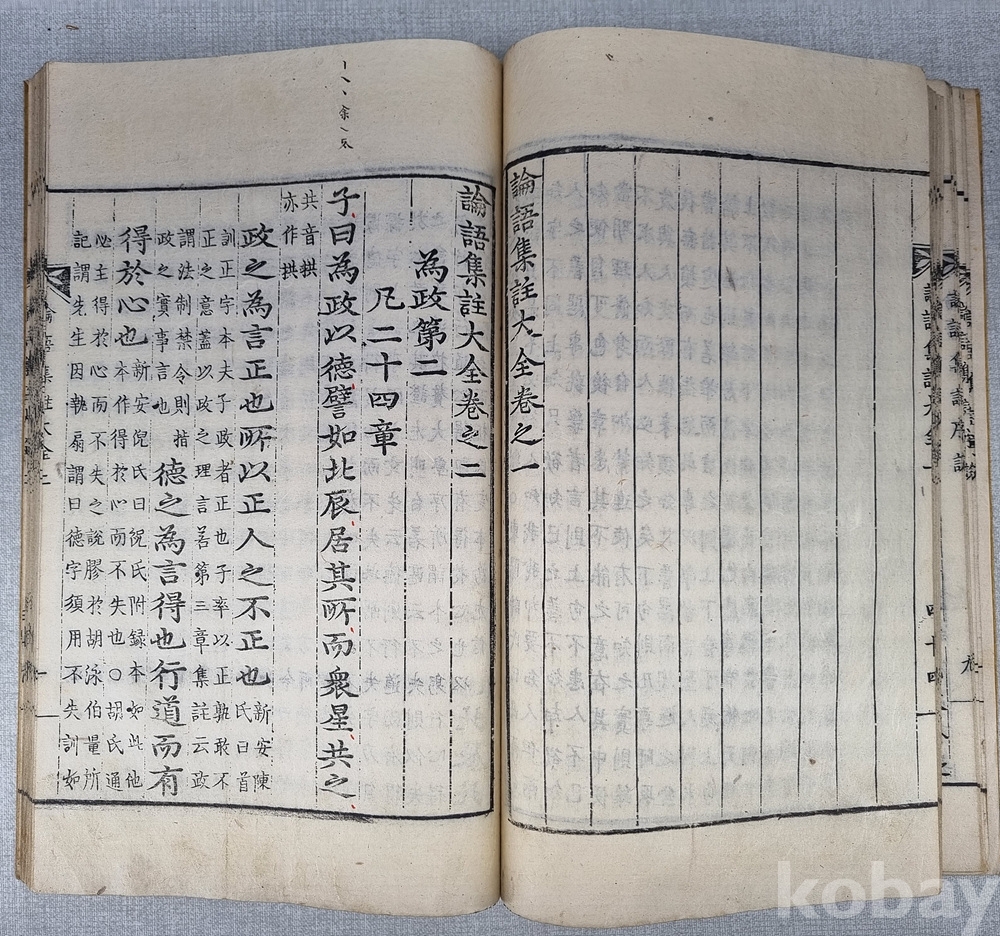 論語集註大全卷之一
論語集註大全卷之二
為政第二
凡二十四章
子曰為政以德譬如北辰居其所而衆星共之
共音拱
亦作拱
政之為言正也所以正人之不正也
新安陳
氏曰首
訓正字本夫子政者正也子率以正孰敢不
正之意蓋以政之理言若第三章集註云政
謂法制禁令則指
政之實事言也
德之為言得也行道而有
得於心也
新安倪氏曰倪氏附録本如此他
本作得於心而不失也○胡氏通
必主得於心而不失之說膠於胡泳伯量所
記謂先生因執扇謂曰德字須用不失訓如
kobay